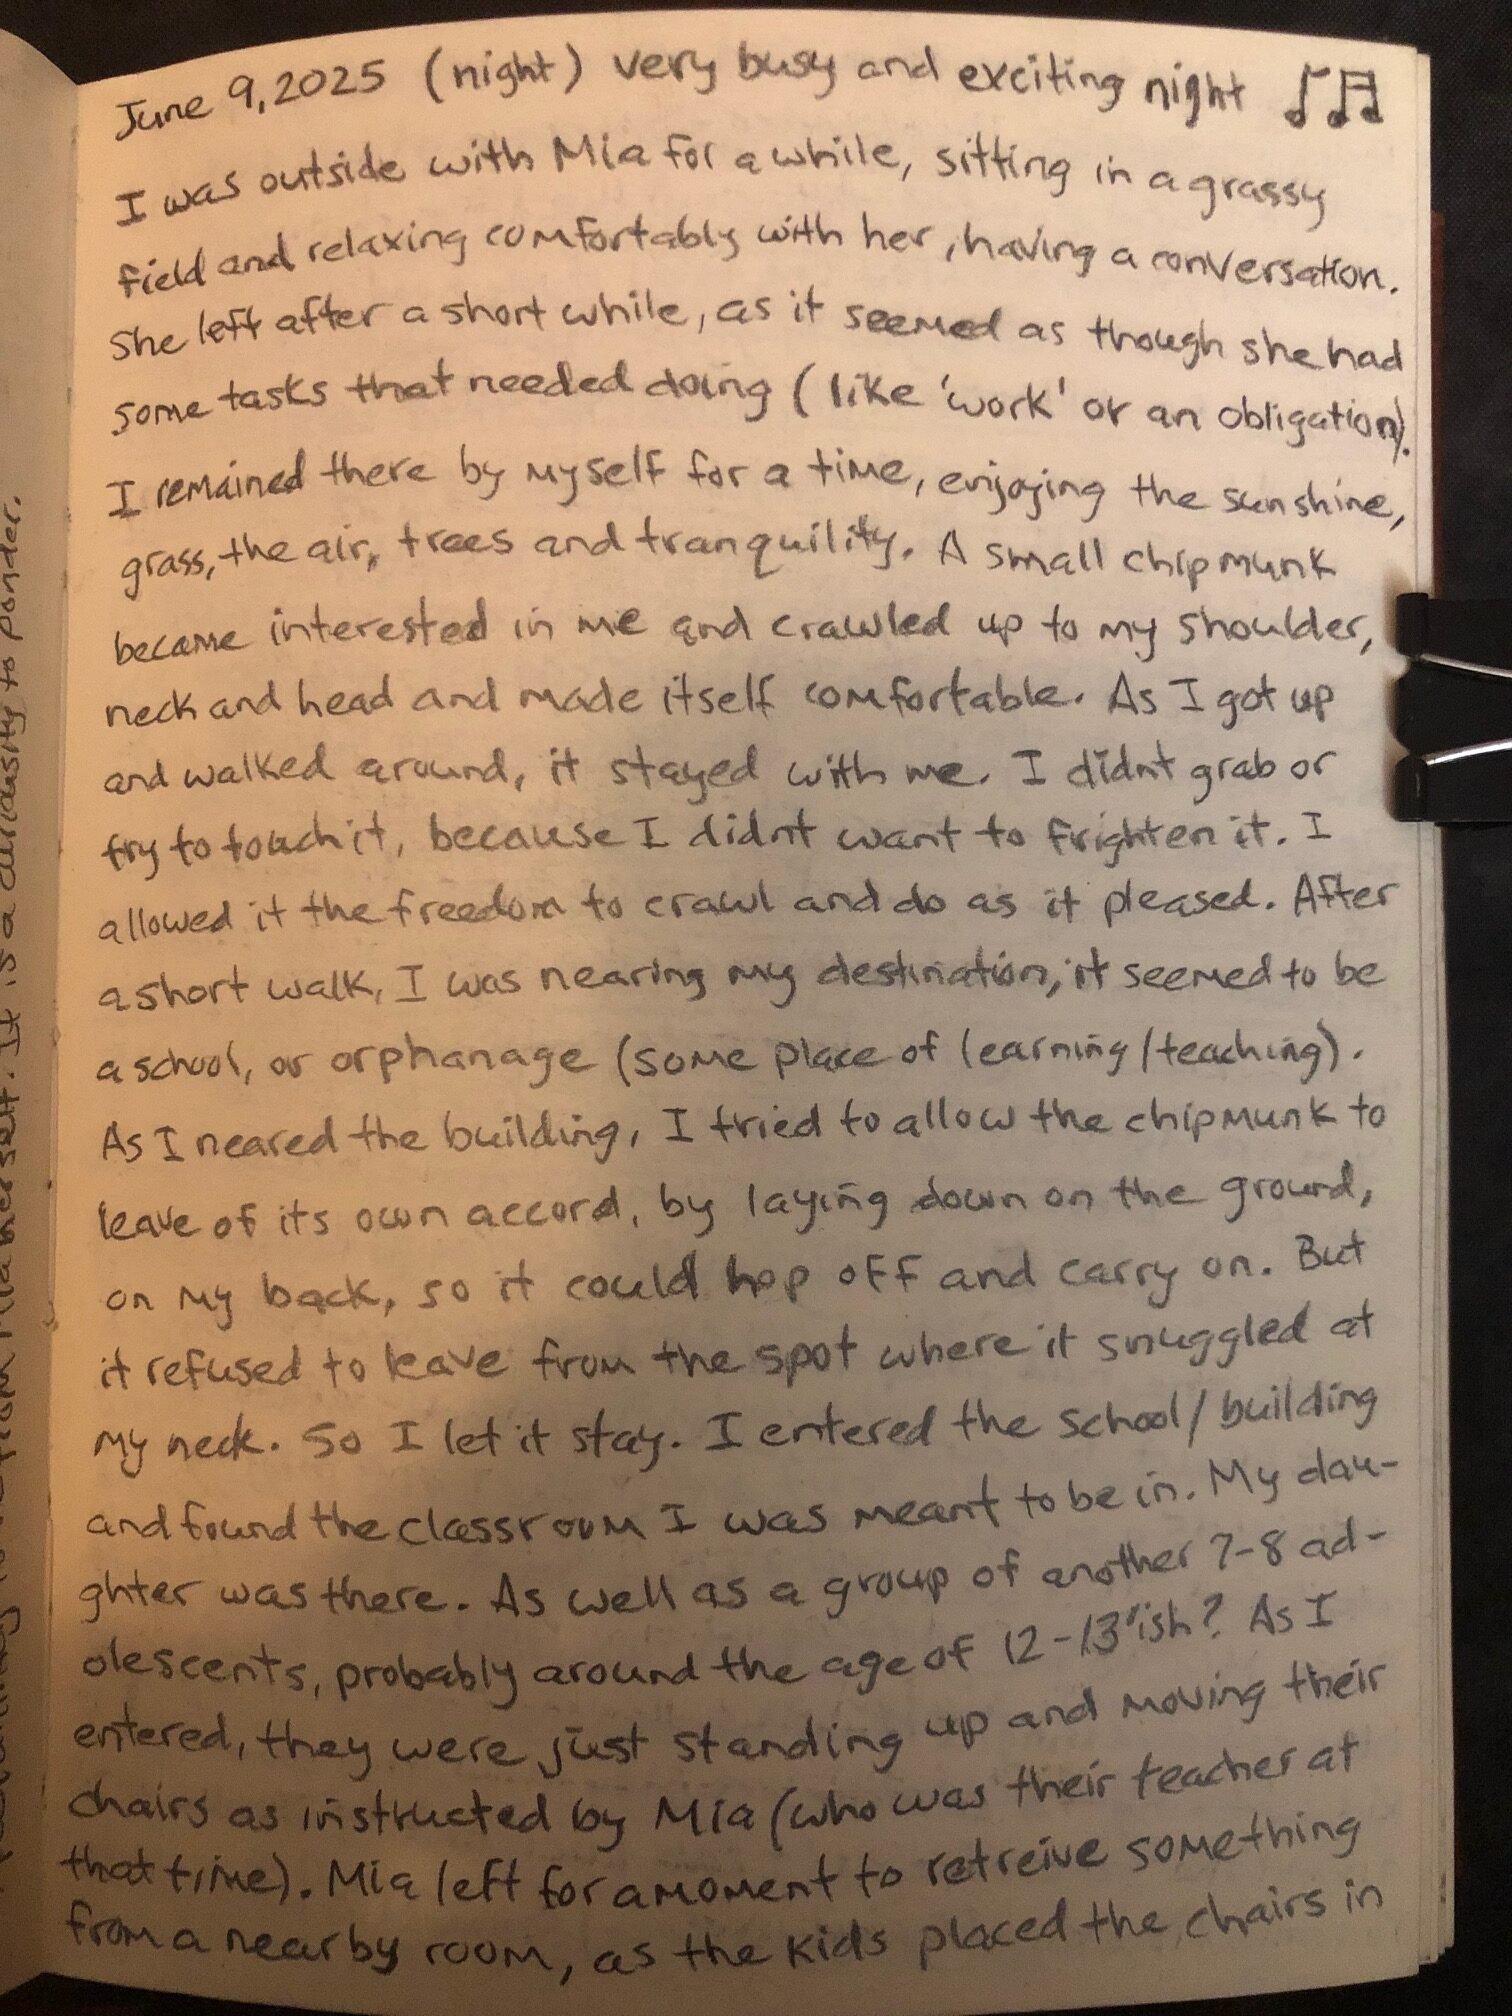 June 9, 2025 (night) very busy and exciting night ♪♫
I was outside with Mia for a while, sitting in a grassy
field and relaxing comfortably with her, having a conversation.
She left after a short while, as it seemed as though she had
some tasks that needed doing (like 'work' or an obligation).
I remained there by myself for a time, enjoying the sunshine,
grass, the air, trees and tranquility. A small chipmunk
became interested in me and crawled up to my shoulder,
neck and head and made itself comfortable. As I got up
and walked around, it stayed with me. I didnt grab or
try to touch it, because I didnt want to frighten it. I
allowed it the freedom to crawl and do as it pleased. After
a short walk, I was nearing my destination, it seemed to be
a school, or orphanage (some place of learning/teaching).
As I neared the building, I tried to allow the chipmunk to
leave of its own accord, by laying down on the ground,
on my back, so it could hop off and carry on. But
it refused to leave from the spot where it snuggled at
my neck. So I let it stay. I entered the school/building
and found the classroom I was meant to be in. My dau-
ghter was there. As well as a group of another 7-8 ad-
olescents, probably around the age of 12-13'ish? As I
entered, they were just standing up and moving their
chairs as instructed by Mia (who was their teacher at
that time). Mia left for a moment to retreive something
from a nearby room, as the kids placed the chairs in
herself. It is a curiosity to ponder.